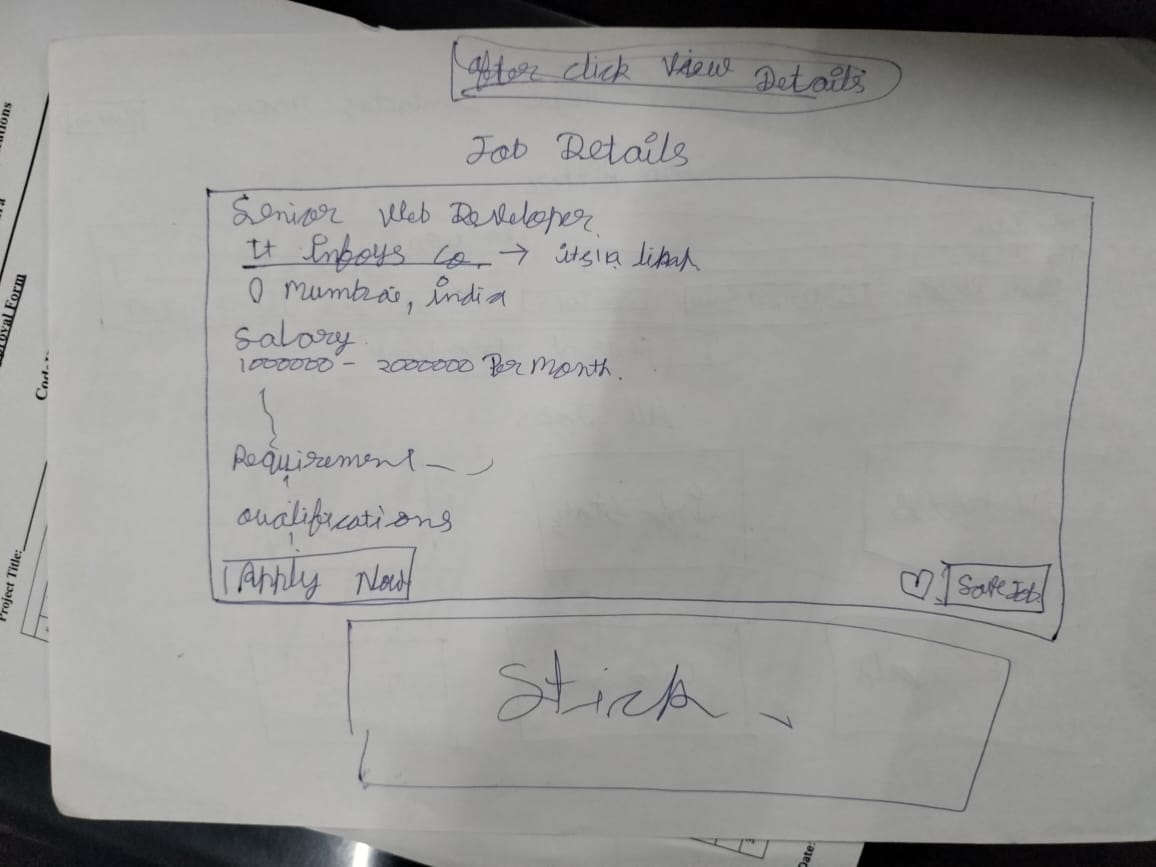 After click View Details
Job Details
Senior Web Developer
It Infoys Co. → itsia
O Mumbai, india
Salary
1000000 - 2000000 Per Month.
Requirement
Qualifications
Apply Now
♡ Save Job
Stick
Approval Form
Project Title:
Date: